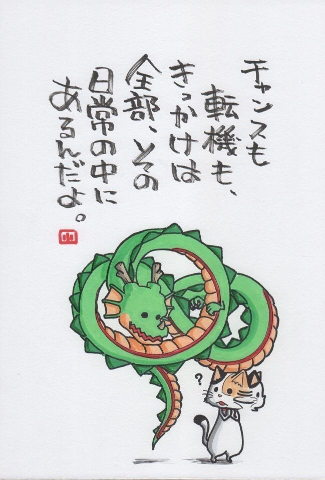 チャンスも
転機も、
きっかけは
全部、その
日常の中に
あるんだよ。
?